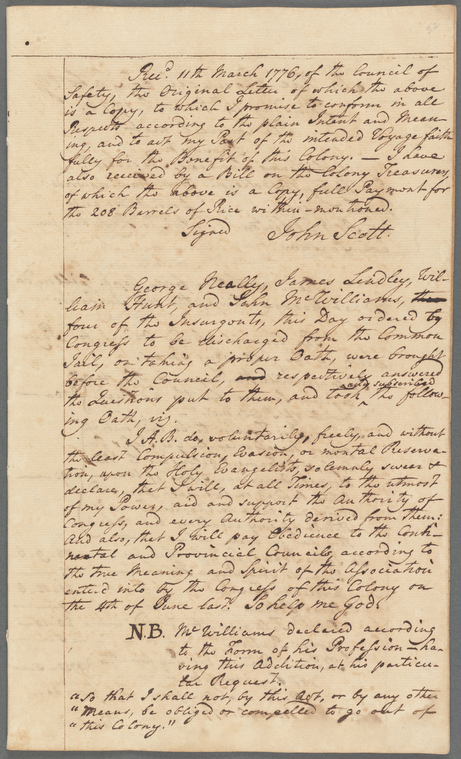 Rec.d 11th March 1776, of the Council of
Safety, the Original Letter of which the above
is a Copy, to which I promise to conform in all
Respects according to the plain Intent and Mean-
ing, and to act my Part of the intended Voyage faith
fully for the Benefit of this Colony. — I have
also received by a Bill on the Colony Treasurers,
of which the above is a Copy, full Payment for
the 208 Barrels of Rice within-mentioned.
Signed John Scott.
George Neally, James Lindley, Wil-
liam Hunt, and John McWilliams,
four of the Insurgents, this Day ordered by
Congress to be discharged from the Common
Jail, on taking a proper Oath, were brought
before the Council, and respectively answered
and subscribed
the Questions put to them, and took ^ the follow-
ing Oath, viz.
I A.B. do, voluntarily, freely, and without
the least Compulsion, Evasion, or mental Reserva-
tion, upon the Holy Evangelists, solemnly swear &
declare, that I will, at all Times, to the utmost
of my Power, aid and support the Authority of
Congress, and every Authority derived from them:
And also, that I will pay Obedience to the Conti-
nental and Provincial Councils, according to
the true Meaning and Spirit of the Association
enter'd into by the Congress of this Colony on
the 4th of June last. So help me God.
N.B. McWilliams declared according
to the Form of his Profession — ha-
ving this Addition, at his particu-
lar Request.
"So that I shall not, by this Act, or by any other
"Means, be obliged or compelled to go out of
"this Colony."